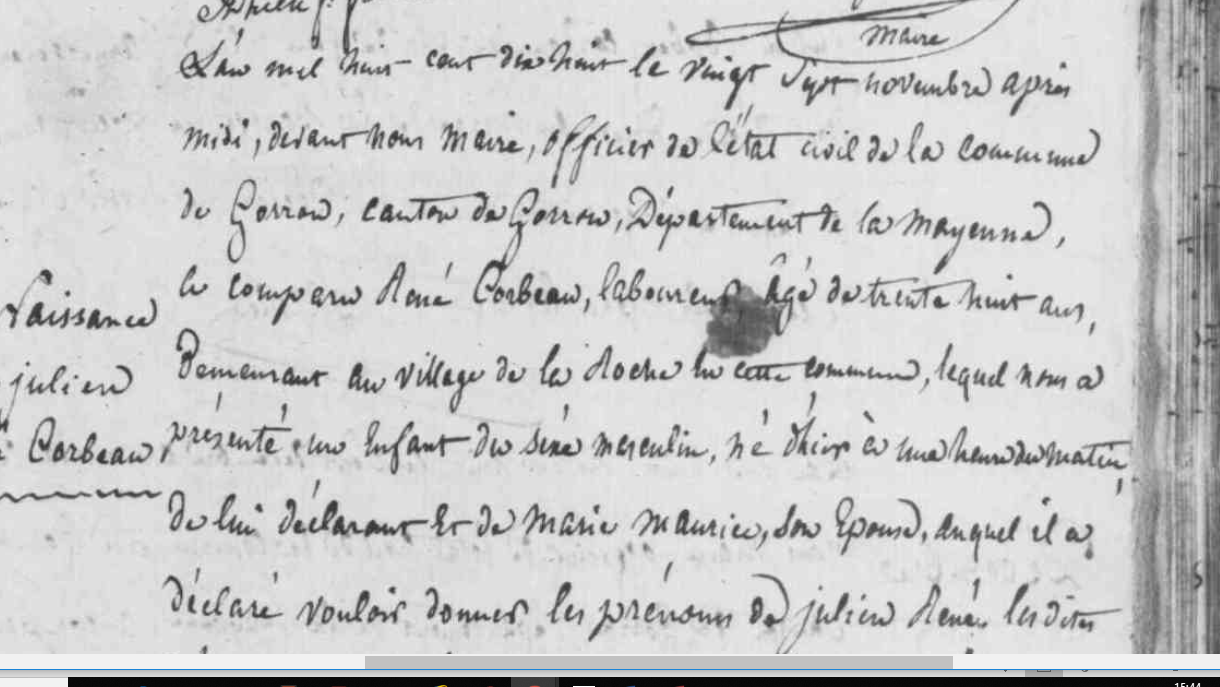 maire
L'an mil huit cent dix huit le vingt sept novembre après
midi, devant nous maire, officier de l'état civil de la commune
de Gorron, canton de Gorron, Département de la mayenne,
Est comparu René Corbeau, laboureur, âgé de trente huit ans,
Naissance
Demeurant au village de la Roche En cette commune, lequel nous a
julien
présenté un Enfant du sexe masculin, né d'hier à une heure du matin,
Corbeau
de lui déclarant Et de Marie maurice, son Epouse, auquel il a
déclaré vouloir donner les prénoms de julien René, lesdites
15:44